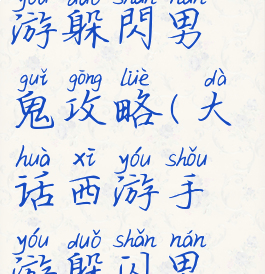 yóu duǒ shǎn nán
游躲閃男
guǐ gōng lüè dà
鬼攻略(大
huà xī yóu shǒu
话西游手
yóu duǒ shǎn nán
游躲闪男